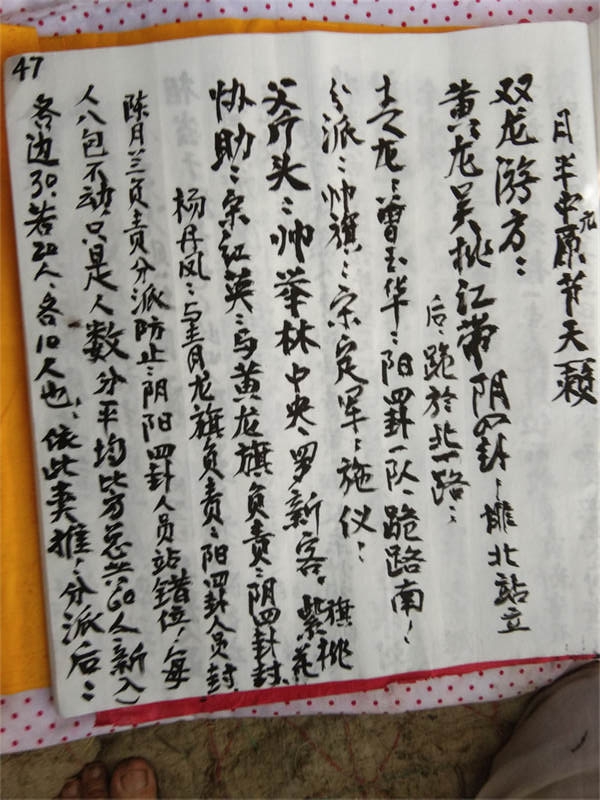 47
月半中元原节天赦
双龙游方：
黄龙吴桃江带阴四卦，排北站立
后：跪於北一路：
青龙：曾玉华：阳四卦一队、跪路南，
分派：帅旗：宋定军，施仪：
父疗头：帅举林中央：罗新客。紫莲旗桃
协助：宋红英：与黄龙旗负责：阴四卦封
杨丹凤：与青龙旗负责：阳四卦人员封
陈月兰负责分派防止：阴阳四卦人员站错位，每
人八包不动只是人数分平均比方总共60人新入
各边30.若20人、各10人也，依此类推，分派后：